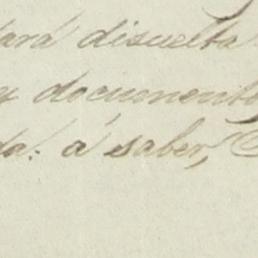 disuelta
y documento
da: á saber,